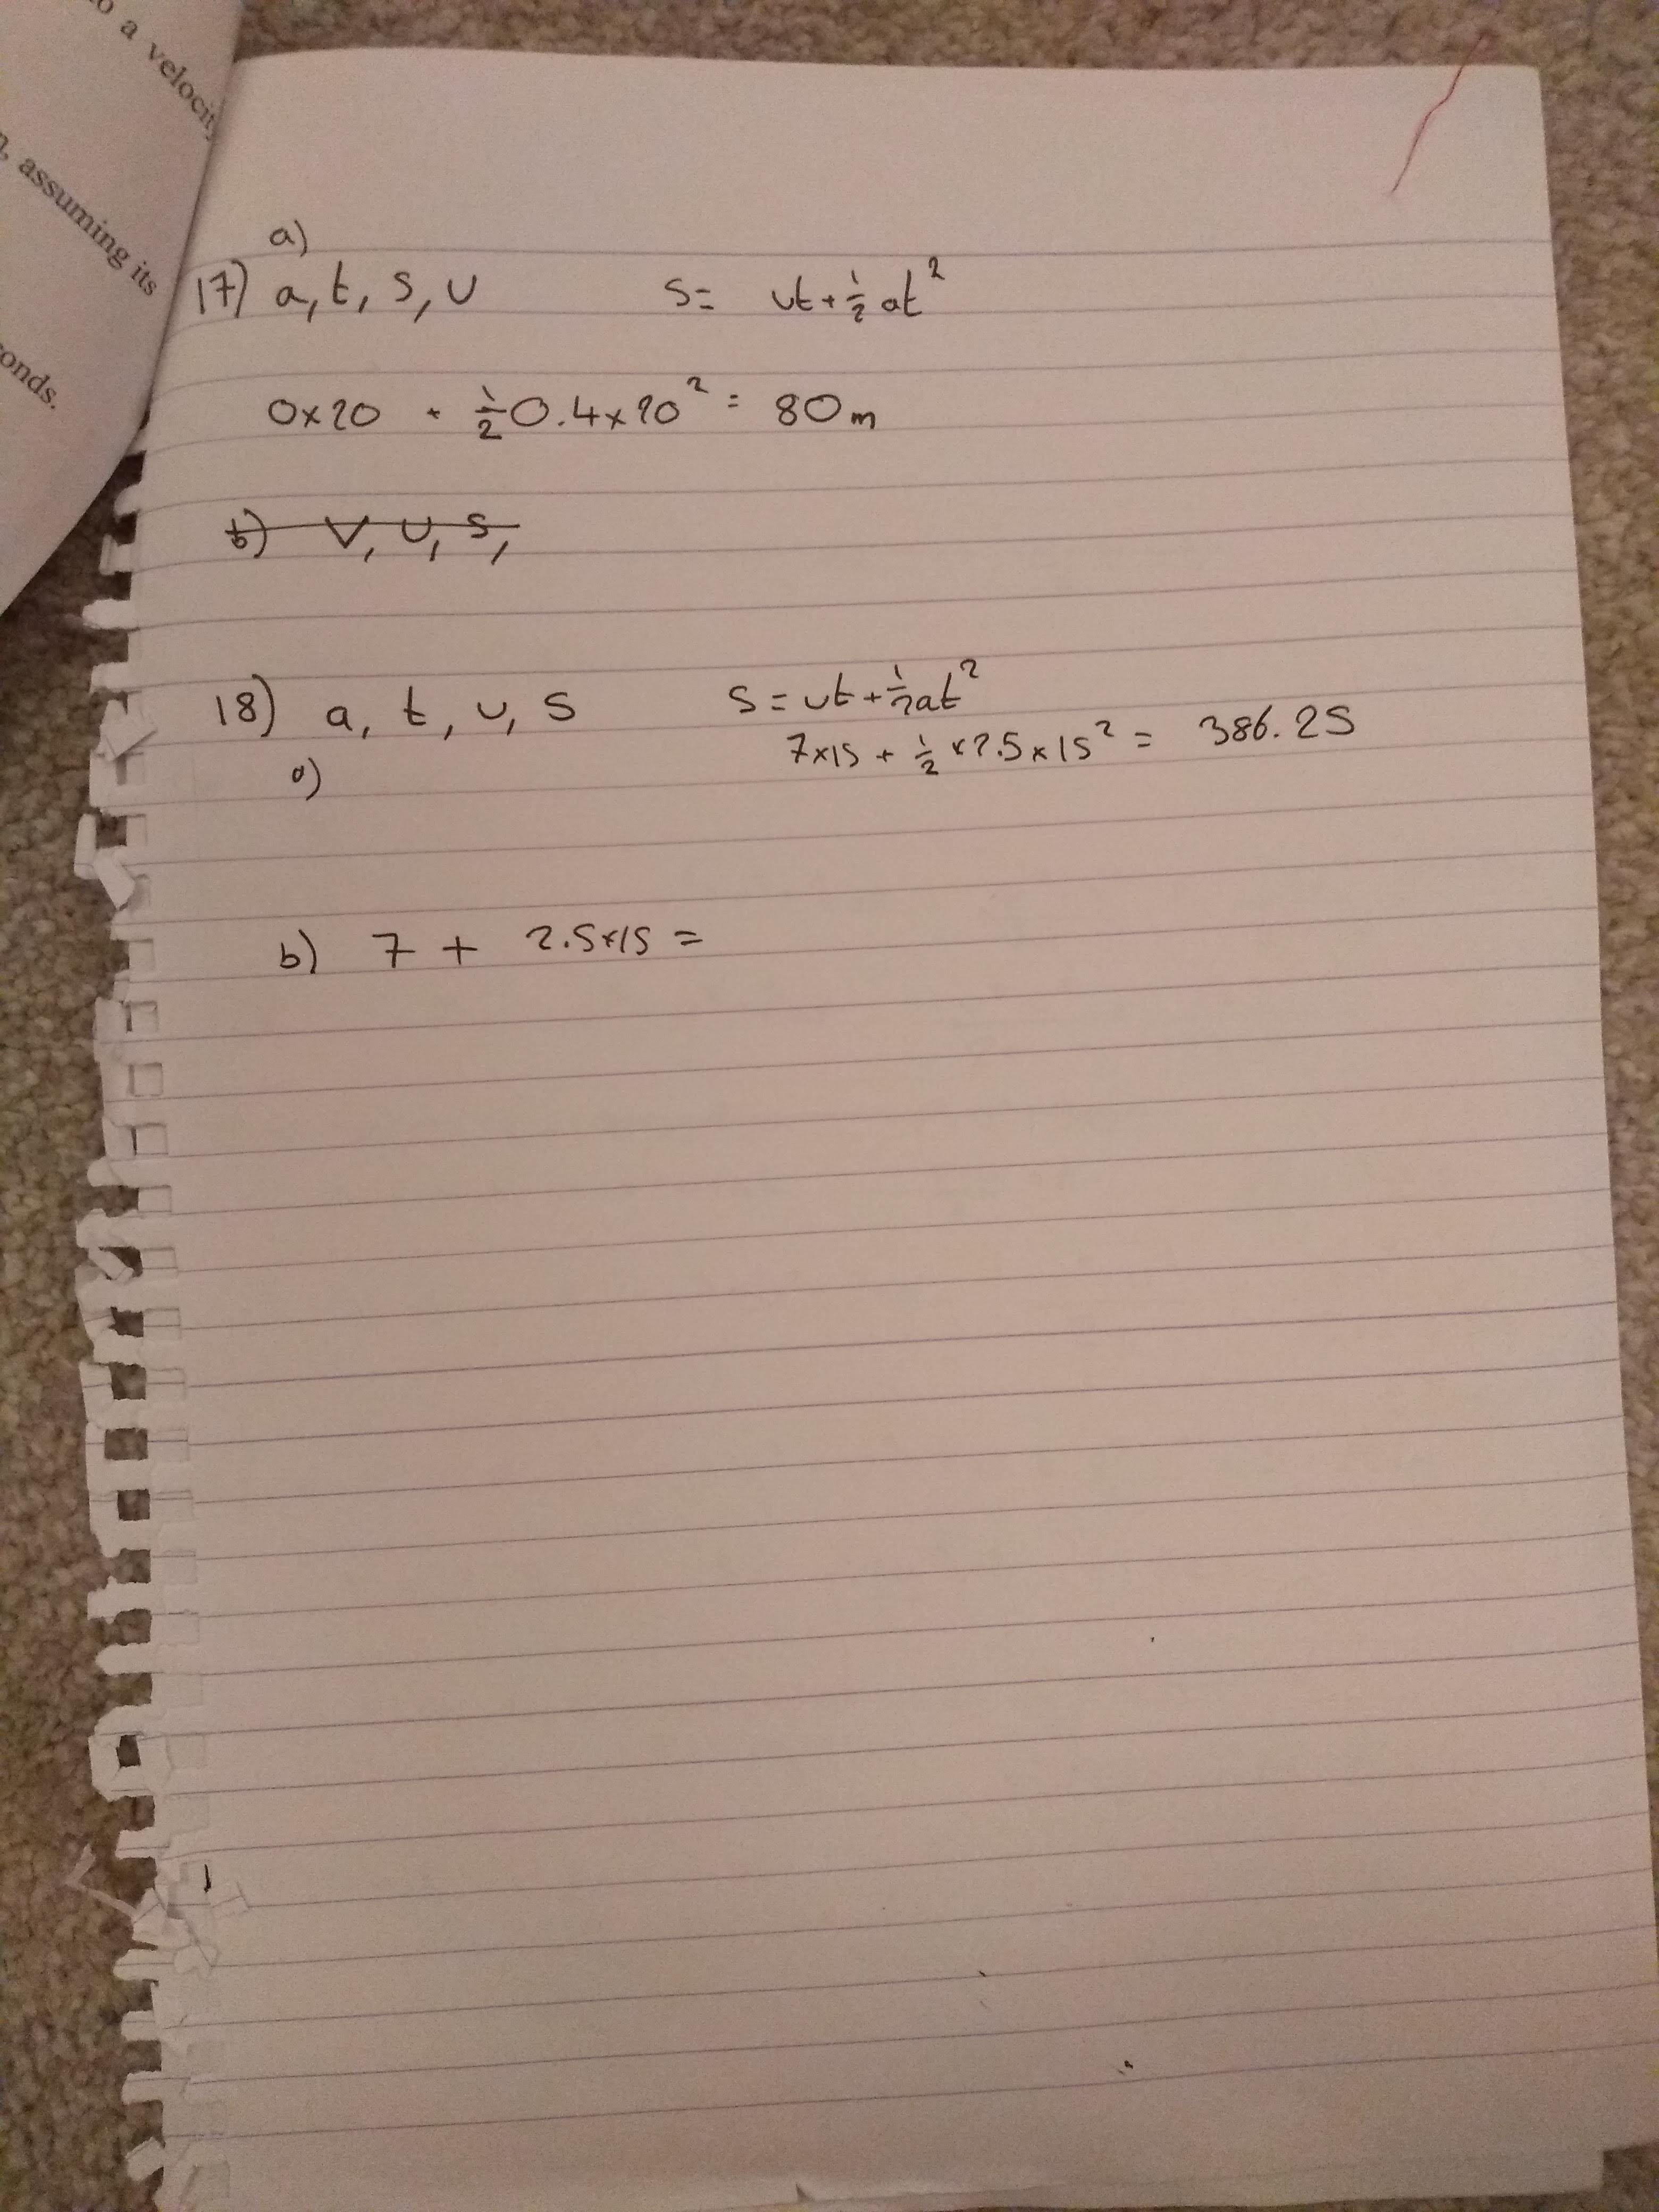 o a velocity
, assuming its
onds.
a)
17) a, t, s, u s= ut+½at²
0×20 + ½0.4×20² = 80m
b) v, u, s,
18) a, t, u, s s=ut+½at²
a) 7×15 + ½×2.5×15² = 386.25
b) 7 + 2.5×15 =